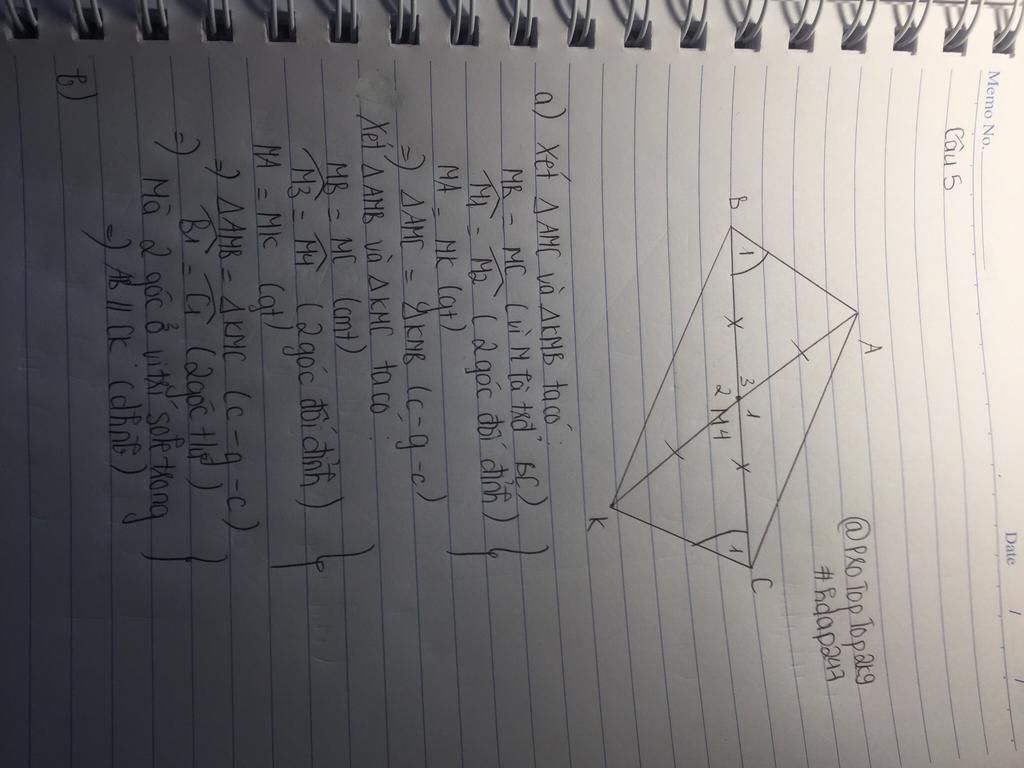 Memo No.
Date / /
Câu 5
@PROTopTop2k9
#hdap247
A
B
1
3 1
2 M 4
1
C
K
a) Xét ΔAMC và ΔKMB ta có:
MB = MC (vì M là tđ BC)
M1 = M2 (2 góc đối đỉnh)
MA = MK (gt)
=) ΔAMC = ΔKMB (c-g-c)
Xét ΔAMB và ΔKMC ta có
MB = MC (cmt)
M3 = M4 (2 góc đối đỉnh)
MA = MK (gt)
=) ΔAMB = ΔKMC (c-g-c)
=) B1 = C1 (2 góc tứ)
Mà 2 góc ở vị trí so le trong
=) AB // CK (đhnb)
b)